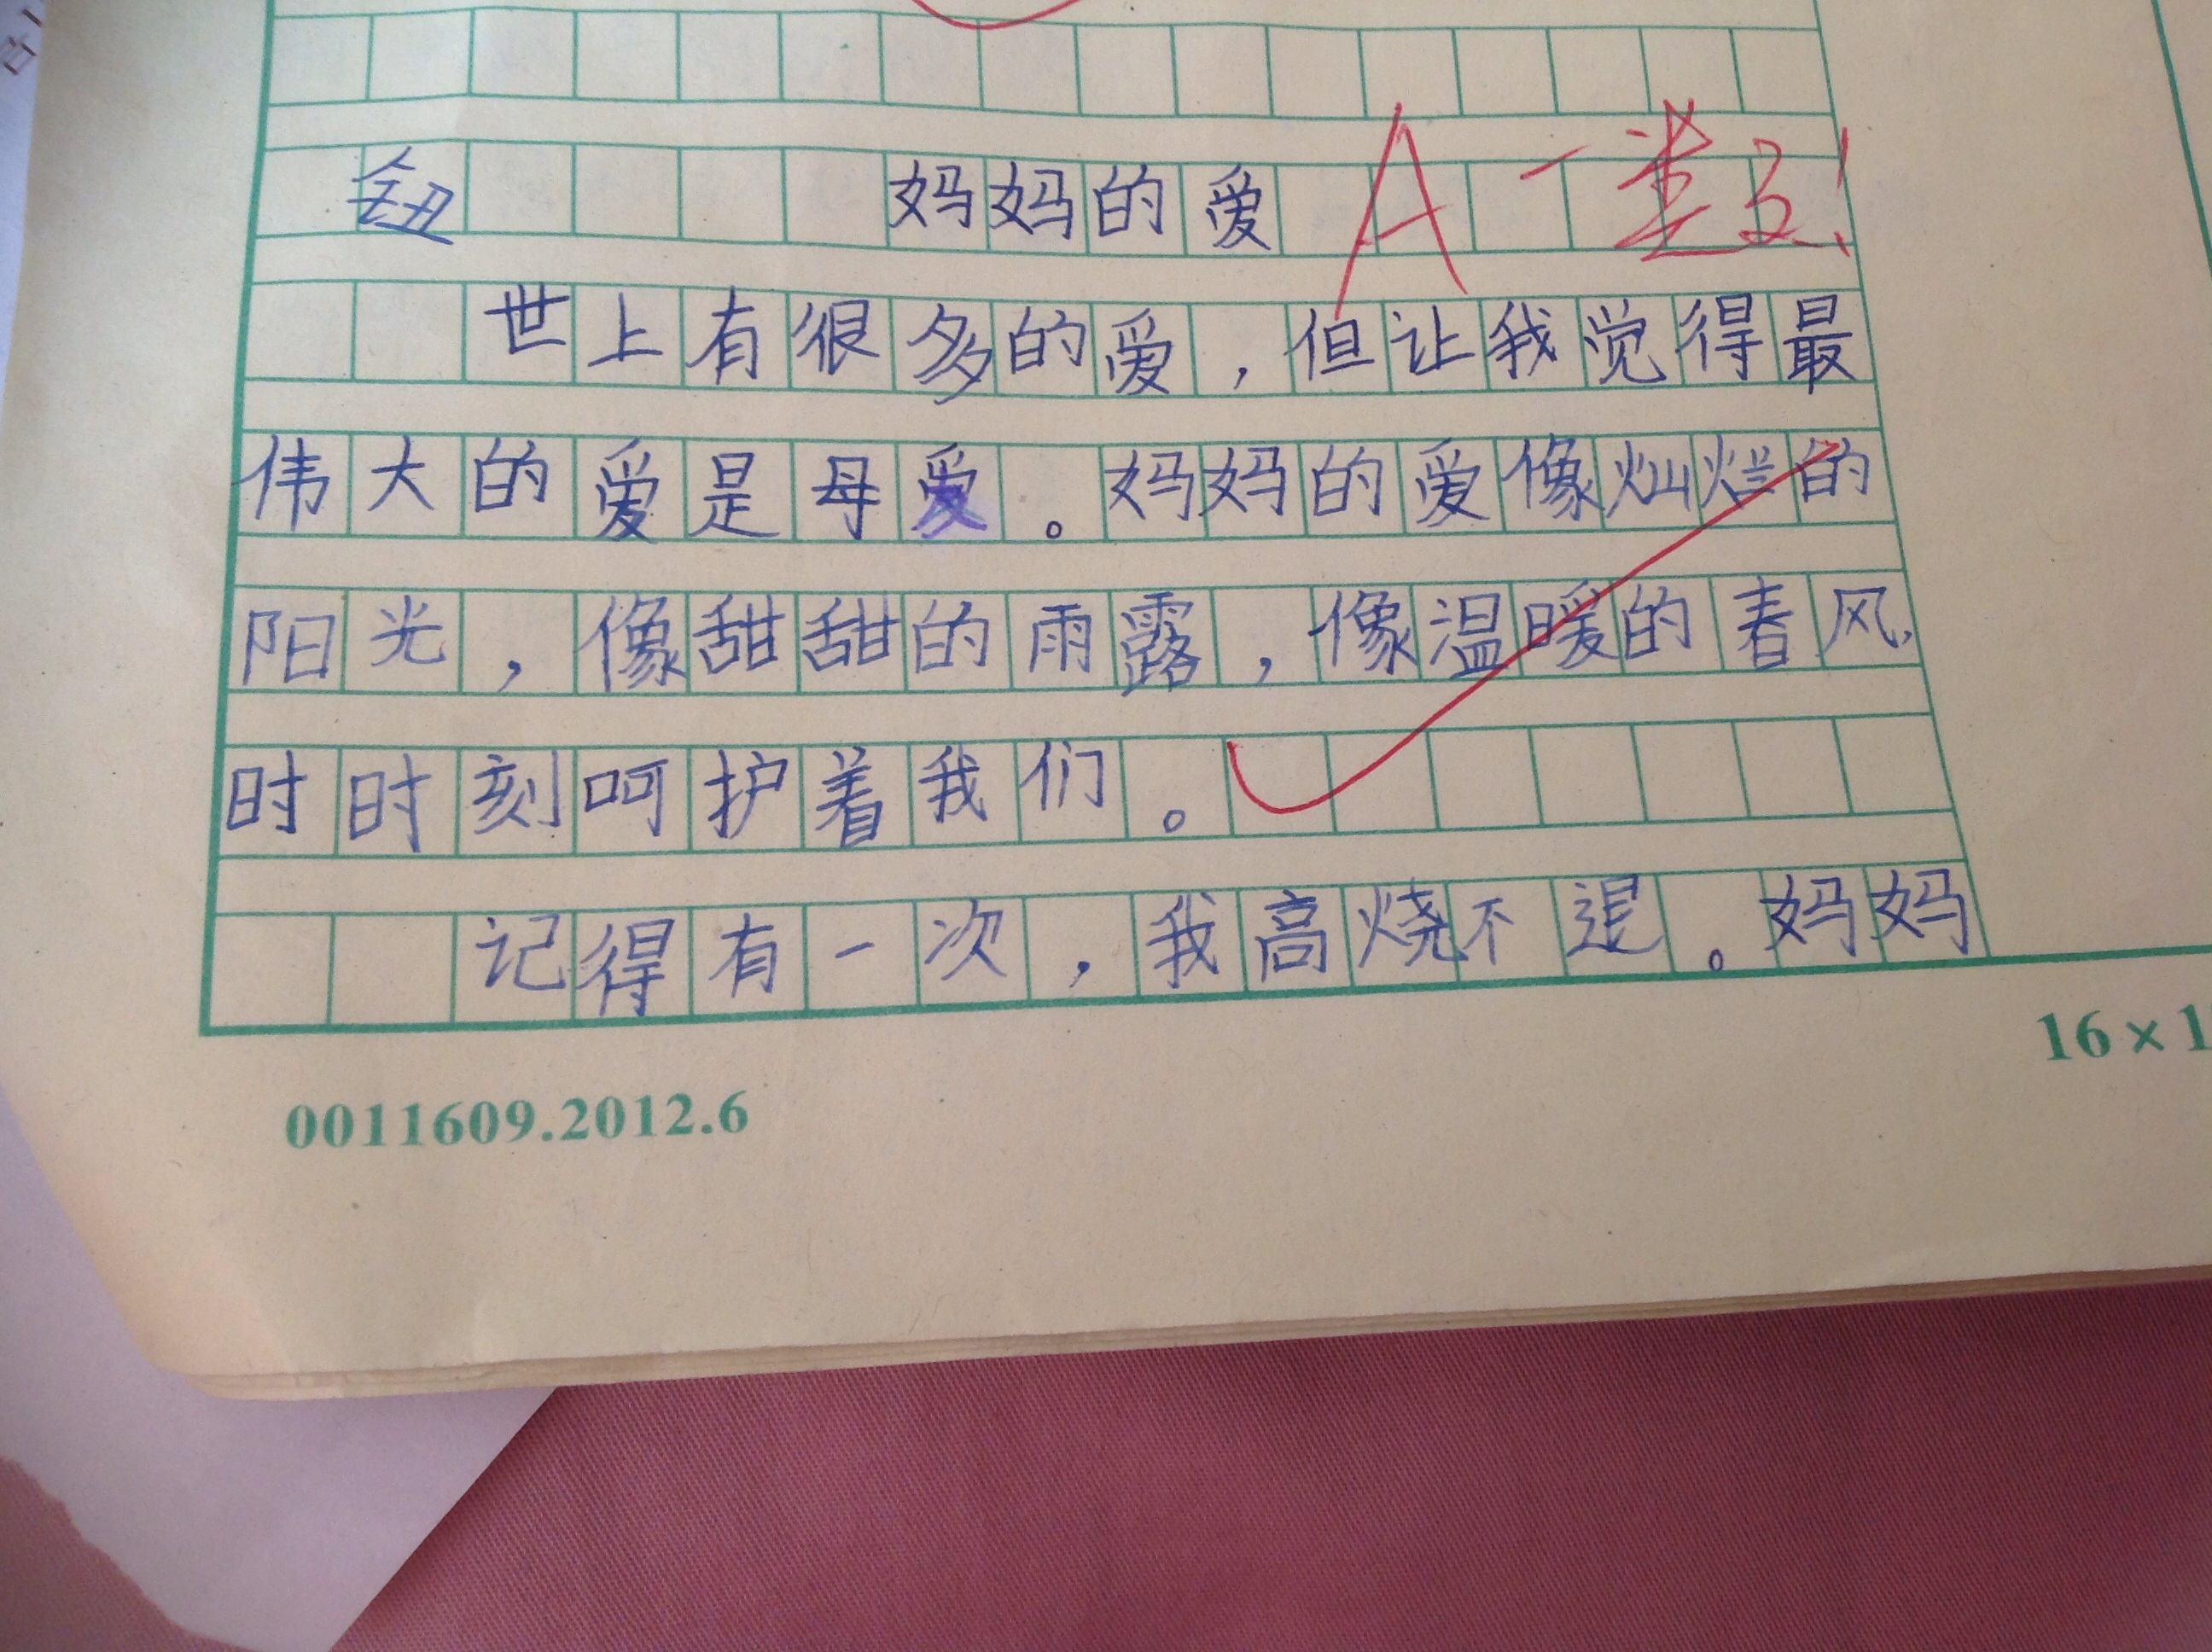 妈妈的爱 A
世上有很多的爱，但让我觉得最
伟大的爱是母爱。妈妈的爱像灿烂的
阳光，像甜甜的雨露，像温暖的春风，
时时刻呵护着我们。
记得有一次，我高烧不退。妈妈
0011609.2012.6
16×1